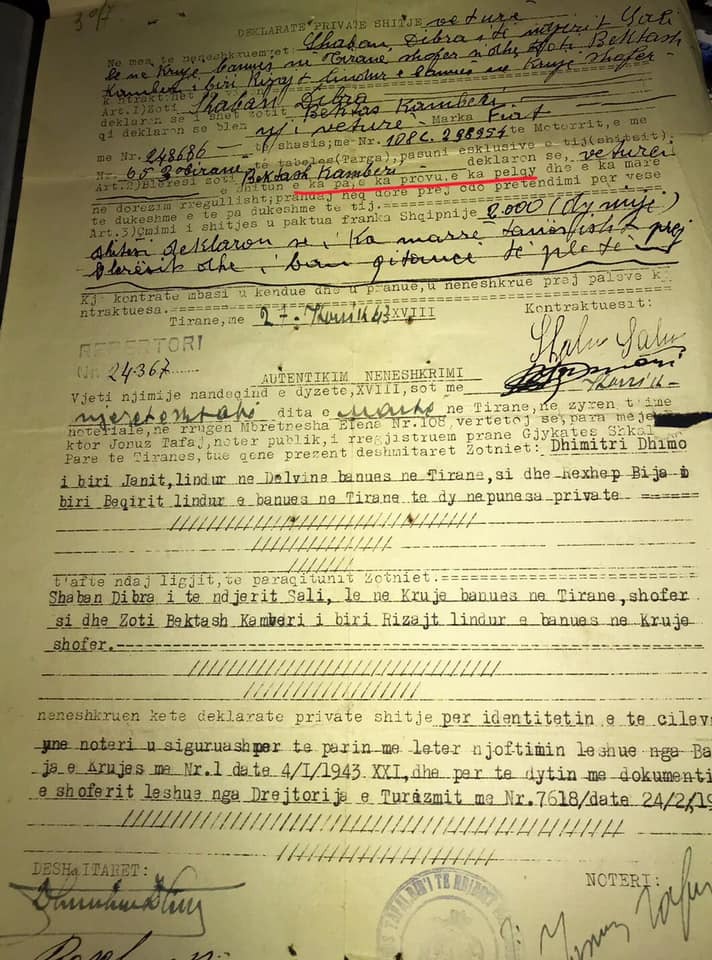 30/7
DEKLARATE PRIVATE SHITJE veturë
Ne mes te neneshkruemvet: Shaban Dibra i të ndjerit Sali
le ne Kruje banues ne Tirane shofer si dhe Zoti Bektash
Kamberi i biri Rizajt lindur e banues ne Kruje shofer
kontraktohet
Art.1) Zoti Shaban Dibra
deklaron se i shet zotit Bektash Kamberi
qi deklaron se blen nji veturë Marka Fiat
me Nr. 248686 te shasis; me Nr. 108C. 298954 te Motorrit, e me
Nr. te tabeles (Targa), pasuni esklusive e tij (shitsit).
Art.2) Blersi zoti Bektash Kamberi deklaron se, veturën
e shitun e ka pa, e ka provu, e ka pelqy dhe e ka marë
ne dorezim rregullisht; prandaj heq dore prej çdo pretendimi per vese
te dukeshme e te pa dukeshme te tij.
Art.3) Çmimi i shitjes u paktua franka Shqipnije 2.000 (dy mijë)
shitësi deklaron se i ka marrë tanësisht prej
blerësit dhe i ban qitancë të plotë
Kj kontrate mbasi u kendue dhe u pranue, u neneshkrue prej paleve kj
ntraktuesa.
Tirane, me 27. 43 XVIII Kontraktuesit:
REPERTORI
Nr. 24367
AUTENTIKIM NENESHKRIMI
Vjeti njimije nandeqind e dyzete, XVIII, sot me
dita e ne Tirane, ne zyren t'ime
noteriale, ne rrugen Mbretnesha Elene Nr.108, vertetoj se, para meje
ktor Jonuz Tafaj, noter publik, i rregjistruem prane Gjykates Shkal
Pare te Tiranes, tue qene prezent deshmitaret Zotniet: Dhimitri Dhimo
i biri Janit, lindur ne Delvine banues ne Tirane, si dhe Rexhep Bija i
biri Beqirit lindur e banues ne Tirane te dy nepunesa private
t'afte ndaj ligjit, te paraqitunit Zotniet.
Shaban Dibra i te ndjerit Sali, le ne Kruje banues ne Tirane, shofer
si dhe Zoti Bektash Kamberi i biri Rizajt lindur e banues ne Kruje
shofer.
neneshkruen kete deklarate private shitje per identitetin e te cilev
yne noteri u siguruashper te parin me leter njoftimin leshue nga Ba
ja e Krujes me Nr.1 date 4/I/1943 XXI, dhe per te dytin me dokumenti
e shoferit leshue nga Drejtorija e Turazmit me Nr.7618/date 24/2/19
DESHMITARET:
NOTERI: